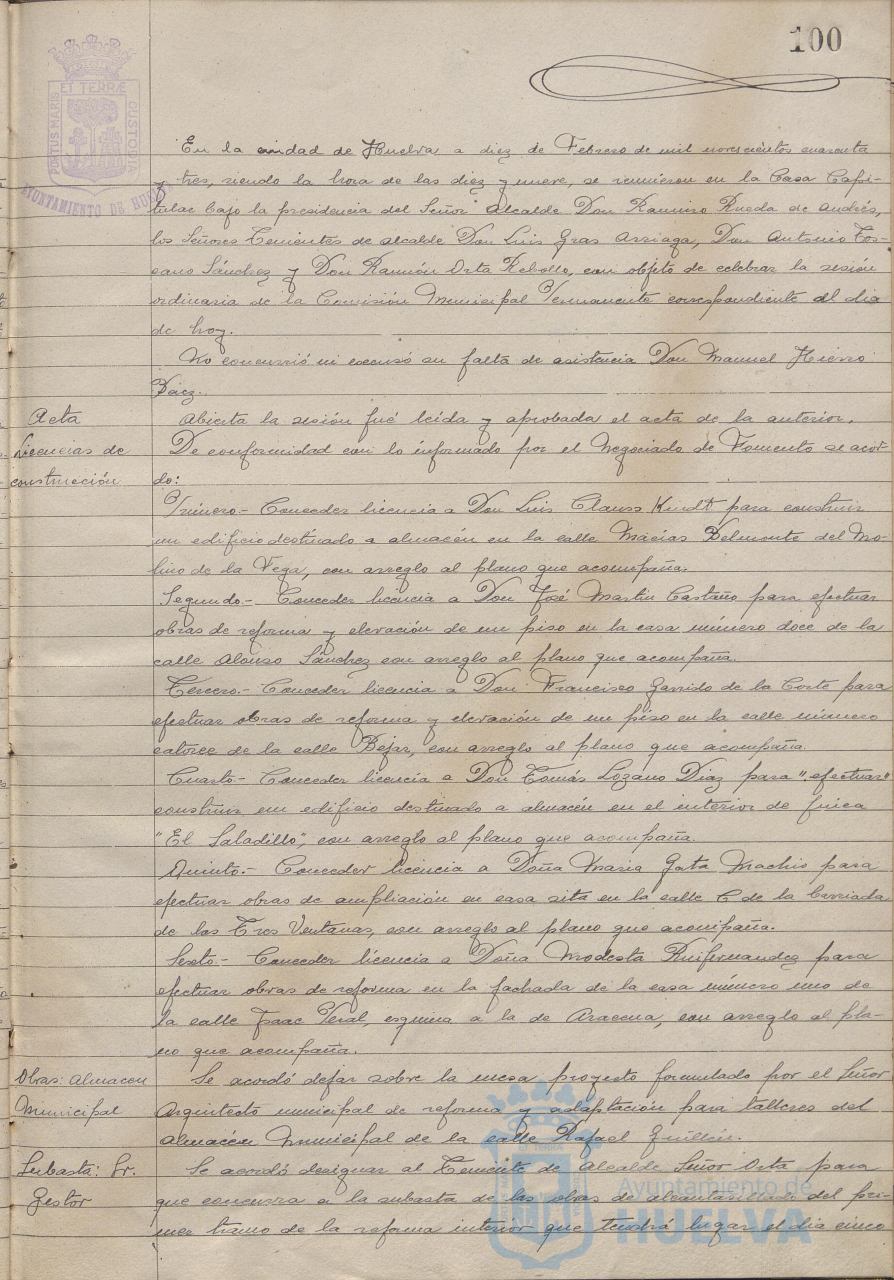 100
PORTUS MARIS ET TERRÆ CUSTODIA
AYUNTAMIENTO DE HUELVA
En la ciudad de Huelva a diez de Febrero de mil novecientos cuarenta
y tres, siendo la hora de las diez y nueve, se reunieron en la Casa Capi-
tular bajo la presidencia del Señor Alcalde Don Ramiro Rueda de Andrés,
los Señores Tenientes de alcalde Don Luis Gras Arriaga, Don Antonio Tos-
cano Sánchez y Don Ramón Orta Rebollo, con objeto de celebrar la sesión
ordinaria de la Comisión Municipal Permanente correspondiente al dia
de hoy.
No concurrió ni excusó su falta de asistencia Don Manuel Hierro
Acta
Abierta la sesión fué leída y aprobada el acta de la anterior.
Licencias de
construcción
De conformidad con lo informado por el Negociado de Fomento se acor-
do:
Primero.- Conceder licencia a Don Luis Clauss Kindt para construir
un edificio destinado a almacén en la calle Macías Belmonte del Mo-
lino de la Vega, con arreglo al plano que acompaña.
Segundo.- Conceder licencia a Don José Martin Castaño para efectuar
obras de reforma y elevación de un piso en la casa número doce de la
calle Alonso Sánchez con arreglo al plano que acompaña.
Tercero.- Conceder licencia a Don Francisco Garrido de la Corte para
efectuar obras de reforma y elevación de un piso en la calle número
catorce de la calle Béjar, con arreglo al plano que acompaña.
Cuarto.- Conceder licencia a Don Tomás Lozano Díaz para "efectuar"
construir un edificio destinado a almacén en el interior de finca
"El Saladillo", con arreglo al plano que acompaña.
Quinto.- Conceder licencia a Doña Maria Gata Machio para
efectuar obras de ampliación en casa sita en la calle C de la barriada
de las Tres Ventanas, con arreglo al plano que acompaña.
Sexto.- Conceder licencia a Doña Modesta Ruifernandez para
efectuar obras de reforma en la fachada de la casa número uno de
la calle Isaac Peral, esquina a la de Aracena, con arreglo al pla-
no que acompaña.
Obras: Almacen
Municipal
Se acordó dejar sobre la mesa proyecto formulado por el Señor
Arquitecto municipal de reforma y adaptación para talleres del
almacén Municipal de la calle Rafael Guillén.
Subasta: Sr.
Gestor
Se acordó designar al Teniente de Alcalde Señor Orta para
que concurra a la subasta de las obras de alcantarillado del pri-
mer tramo de la reforma interior que tendrá lugar el dia cinco
Ayuntamiento de
HUELVA